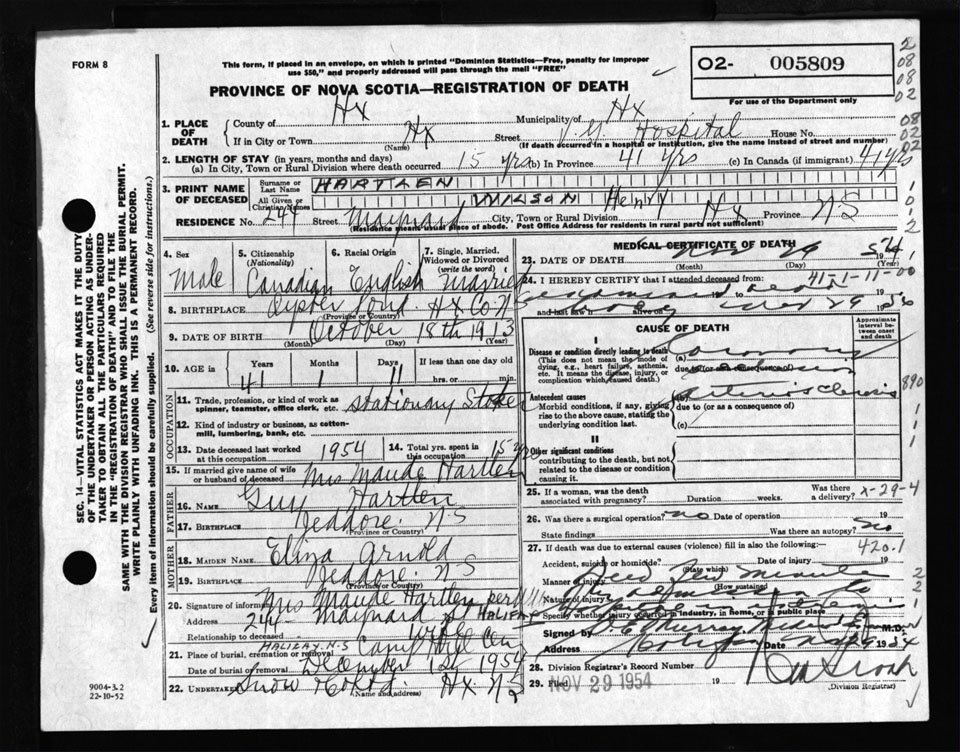 FORM 8
This form, if placed in an envelope, on which is printed "Dominion Statistics—Free, penalty for improper
use $50," and properly addressed will pass through the mail "FREE"
O2- 005809
For use of the Department only
PROVINCE OF NOVA SCOTIA—REGISTRATION OF DEATH
2
08
08
02
1. PLACE OF DEATH
County of Hx Municipality of Hx
If in City or Town Hx Street V.G. Hospital House No.
(Name) (If death occurred in a hospital or institution, give the name instead of street and number)
08
02
02
2. LENGTH OF STAY (in years, months and days)
(a) In City, Town or Rural Division where death occurred 15 yrs (b) In Province 41 yrs (c) In Canada (if immigrant) 41 yrs
3. PRINT NAME OF DECEASED
Surname or Last Name HARTLEN
All Given or Christian Names WILSON Henry
RESIDENCE No. 244 Street Maynard City, Town or Rural Division Hx Province NS
(Residence means usual place of abode. Post Office Address for residents in rural parts not sufficient)
4. Sex Male
5. Citizenship (Nationality) Canadian
6. Racial Origin English
7. Single, Married, Widowed or Divorced (write the word) Married
8. BIRTHPLACE Oyster Pond Hx Co
(Province or Country)
9. DATE OF BIRTH October 18th 1913
(Month) (Day) (Year)
10. AGE in Years 41 Months 1 Days 11 If less than one day old
hrs. or min.
OCCUPATION
11. Trade, profession, or kind of work as
spinner, teamster, office clerk, etc. Stationary
12. Kind of industry or business, as cotton-
mill, lumbering, bank, etc.
13. Date deceased last worked at this occupation 1954
14. Total yrs. spent in this occupation 15 yrs
15. If married give name of wife
or husband of deceased Mrs Maude Hartlen
FATHER
16. Name Guy Hartlen
17. Birthplace Jeddore. N S
(Province or Country)
MOTHER
18. Maiden Name Eliza Arnold
19. Birthplace Jeddore. N S
(Province or Country)
20. Signature of informant Mrs Maude Hartlen per
Address 244 Maynard St HALIFAX
Relationship to deceased
21. Place of burial, cremation or removal HALIFAX. N.S Camp Hill Cem
Date of burial or removal December 1st 1954
22. Undertaker Snow & Co Ltd. Hx. NS
(Name and address)
MEDICAL CERTIFICATE OF DEATH
23. DATE OF DEATH Nov 29 1954
(Month) (Day)
24. I HEREBY CERTIFY that I attended deceased from: 41-1-11-00
to 19
and last saw h alive on Nov 29 19
CAUSE OF DEATH
Approximate interval between onset and death
I
Disease or condition directly leading to death (a) Coronary
(This does not mean the mode of
dying, e.g., heart failure, asthenia,
etc. It means the disease, injury, or
complication which caused death.)
due to (or as a consequence of)
Antecedent causes (b)
Morbid conditions, if any, giving
rise to the above cause, stating the
underlying condition last.
due to (or as a consequence of)
(c)
890
1
1
II
Other significant conditions
contributing to the death, but not
related to the disease or condition
causing it.
25. If a woman, was the death
associated with pregnancy? Duration weeks. Was there a delivery?
x-29-4
26. Was there a surgical operation? no Date of operation 19
State findings Was there an autopsy? no
27. If death was due to external causes (violence) fill in also the following:— 420.1
Accident, suicide or homicide? Date of injury 19
(State which)
Manner of injury
(How sustained
Nature of injury
Specify whether injury occurred in industry, in home, or in public place
Signed by M.D.
Address Date 19
28. Division Registrar's Record Number
29. Filed NOV 29 1954 19
(Division Registrar)
SEC. 14—VITAL STATISTICS ACT MAKES IT THE DUTY
OF THE UNDERTAKER OR PERSON ACTING AS UNDER-
TAKER TO OBTAIN ALL THE PARTICULARS REQUIRED
IN THE "REGISTRATION OF DEATH" AND TO FILE THE
SAME WITH THE DIVISION REGISTRAR WHO SHALL ISSUE THE BURIAL PERMIT.
WRITE PLAINLY WITH UNFADING INK. THIS IS A PERMANENT RECORD.
Every item of information should be carefully supplied. (See reverse side for instructions.)
9004-3.2
22-10-52